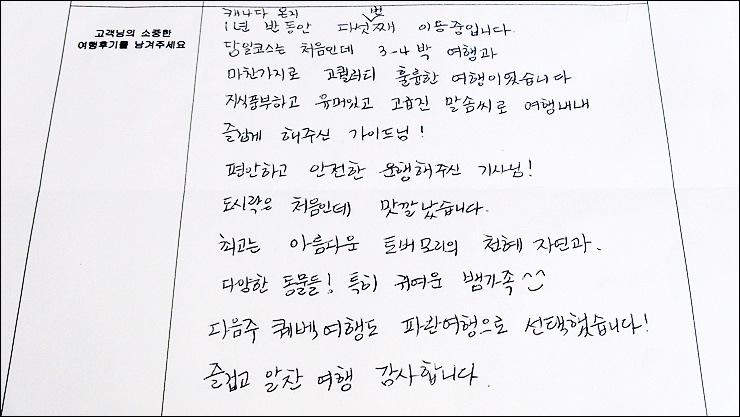 고객님의 소중한
여행후기를 남겨주세요
캐나다 온지 번
1년 반동안 다섯째 이용중입니다.
당일코스는 처음인데 3-4박 여행과
마찬가지로 고퀄러티 훌륭한 여행이었습니다
지식풍부하고 유머있고 고급진 말솜씨로 여행내내
즐겁게 해주신 가이드님!
편안하고 안전한 운행해주신 기사님!
도시락은 처음인데 맛깔났습니다.
최고는 아름다운 토버모리의 천혜 자연과.
다양한 동물들! 특히 귀여운 뱀가족 ^^
다음주 퀘벡여행도 파란여행으로 선택했습니다!
즐겁고 알찬 여행 감사합니다.